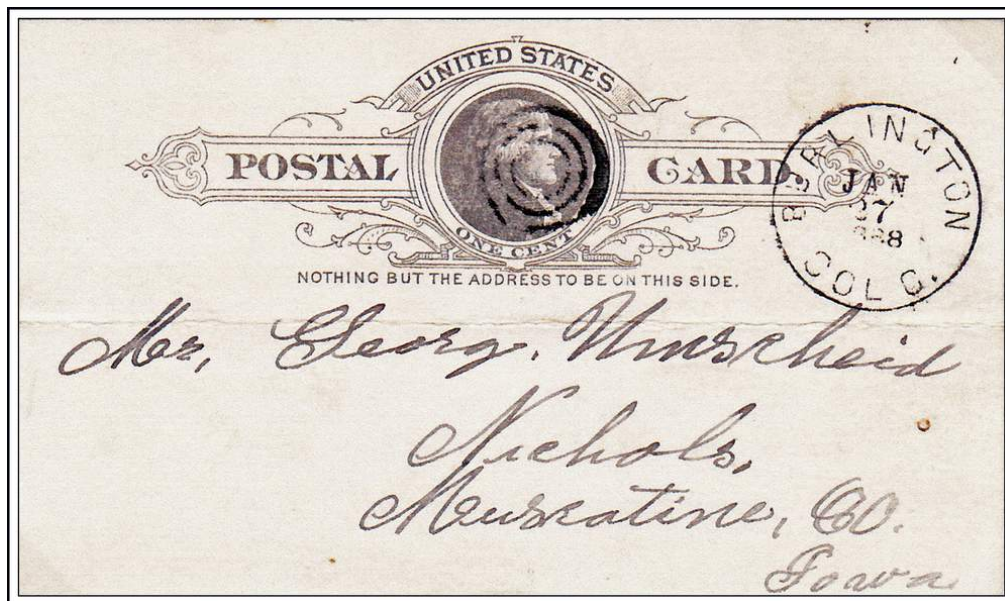 UNITED STATES
POSTAL CARD.
ONE CENT
NOTHING BUT THE ADDRESS TO BE ON THIS SIDE.
BURLINGTON
JAN
27
COLO.
Mr, Georg. Umscheid
Nichols,
Muscatine, CO.
Iowa